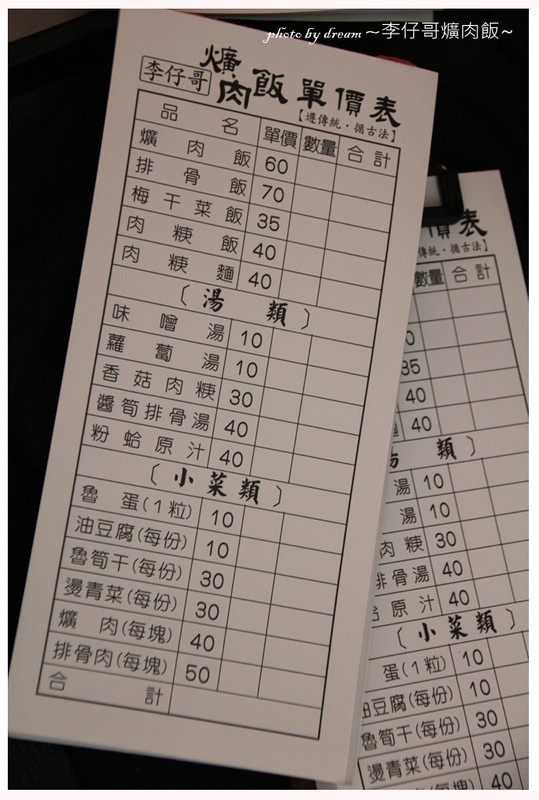 photo by dream ~李仔哥爌肉飯~
李仔哥 爌肉飯單價表
【遵傳統・循古法】
品名 單價 數量 合計
爌肉飯 60
排骨飯 70
梅干菜飯 35
肉粳飯 40
肉粳麵 40
〔湯類〕
味噌湯 10
蘿蔔湯 10
香菇肉粳 30
醬筍排骨湯 40
粉蛤原汁 40
〔小菜類〕
魯蛋(1粒) 10
油豆腐(每份) 10
魯筍干(每份) 30
燙青菜(每份) 30
爌肉(每塊) 40
排骨肉(每塊) 50
合計
價表
傳統・循古法】
數量 合計
0
35
40
40
類〕
湯 10
湯 10
肉粳 30
排骨湯 40
原汁 40
〔小菜類〕
蛋(1粒) 10
豆腐(每份) 10
魯筍干(每份) 30
燙青菜(每份) 30
肉(每塊) 40